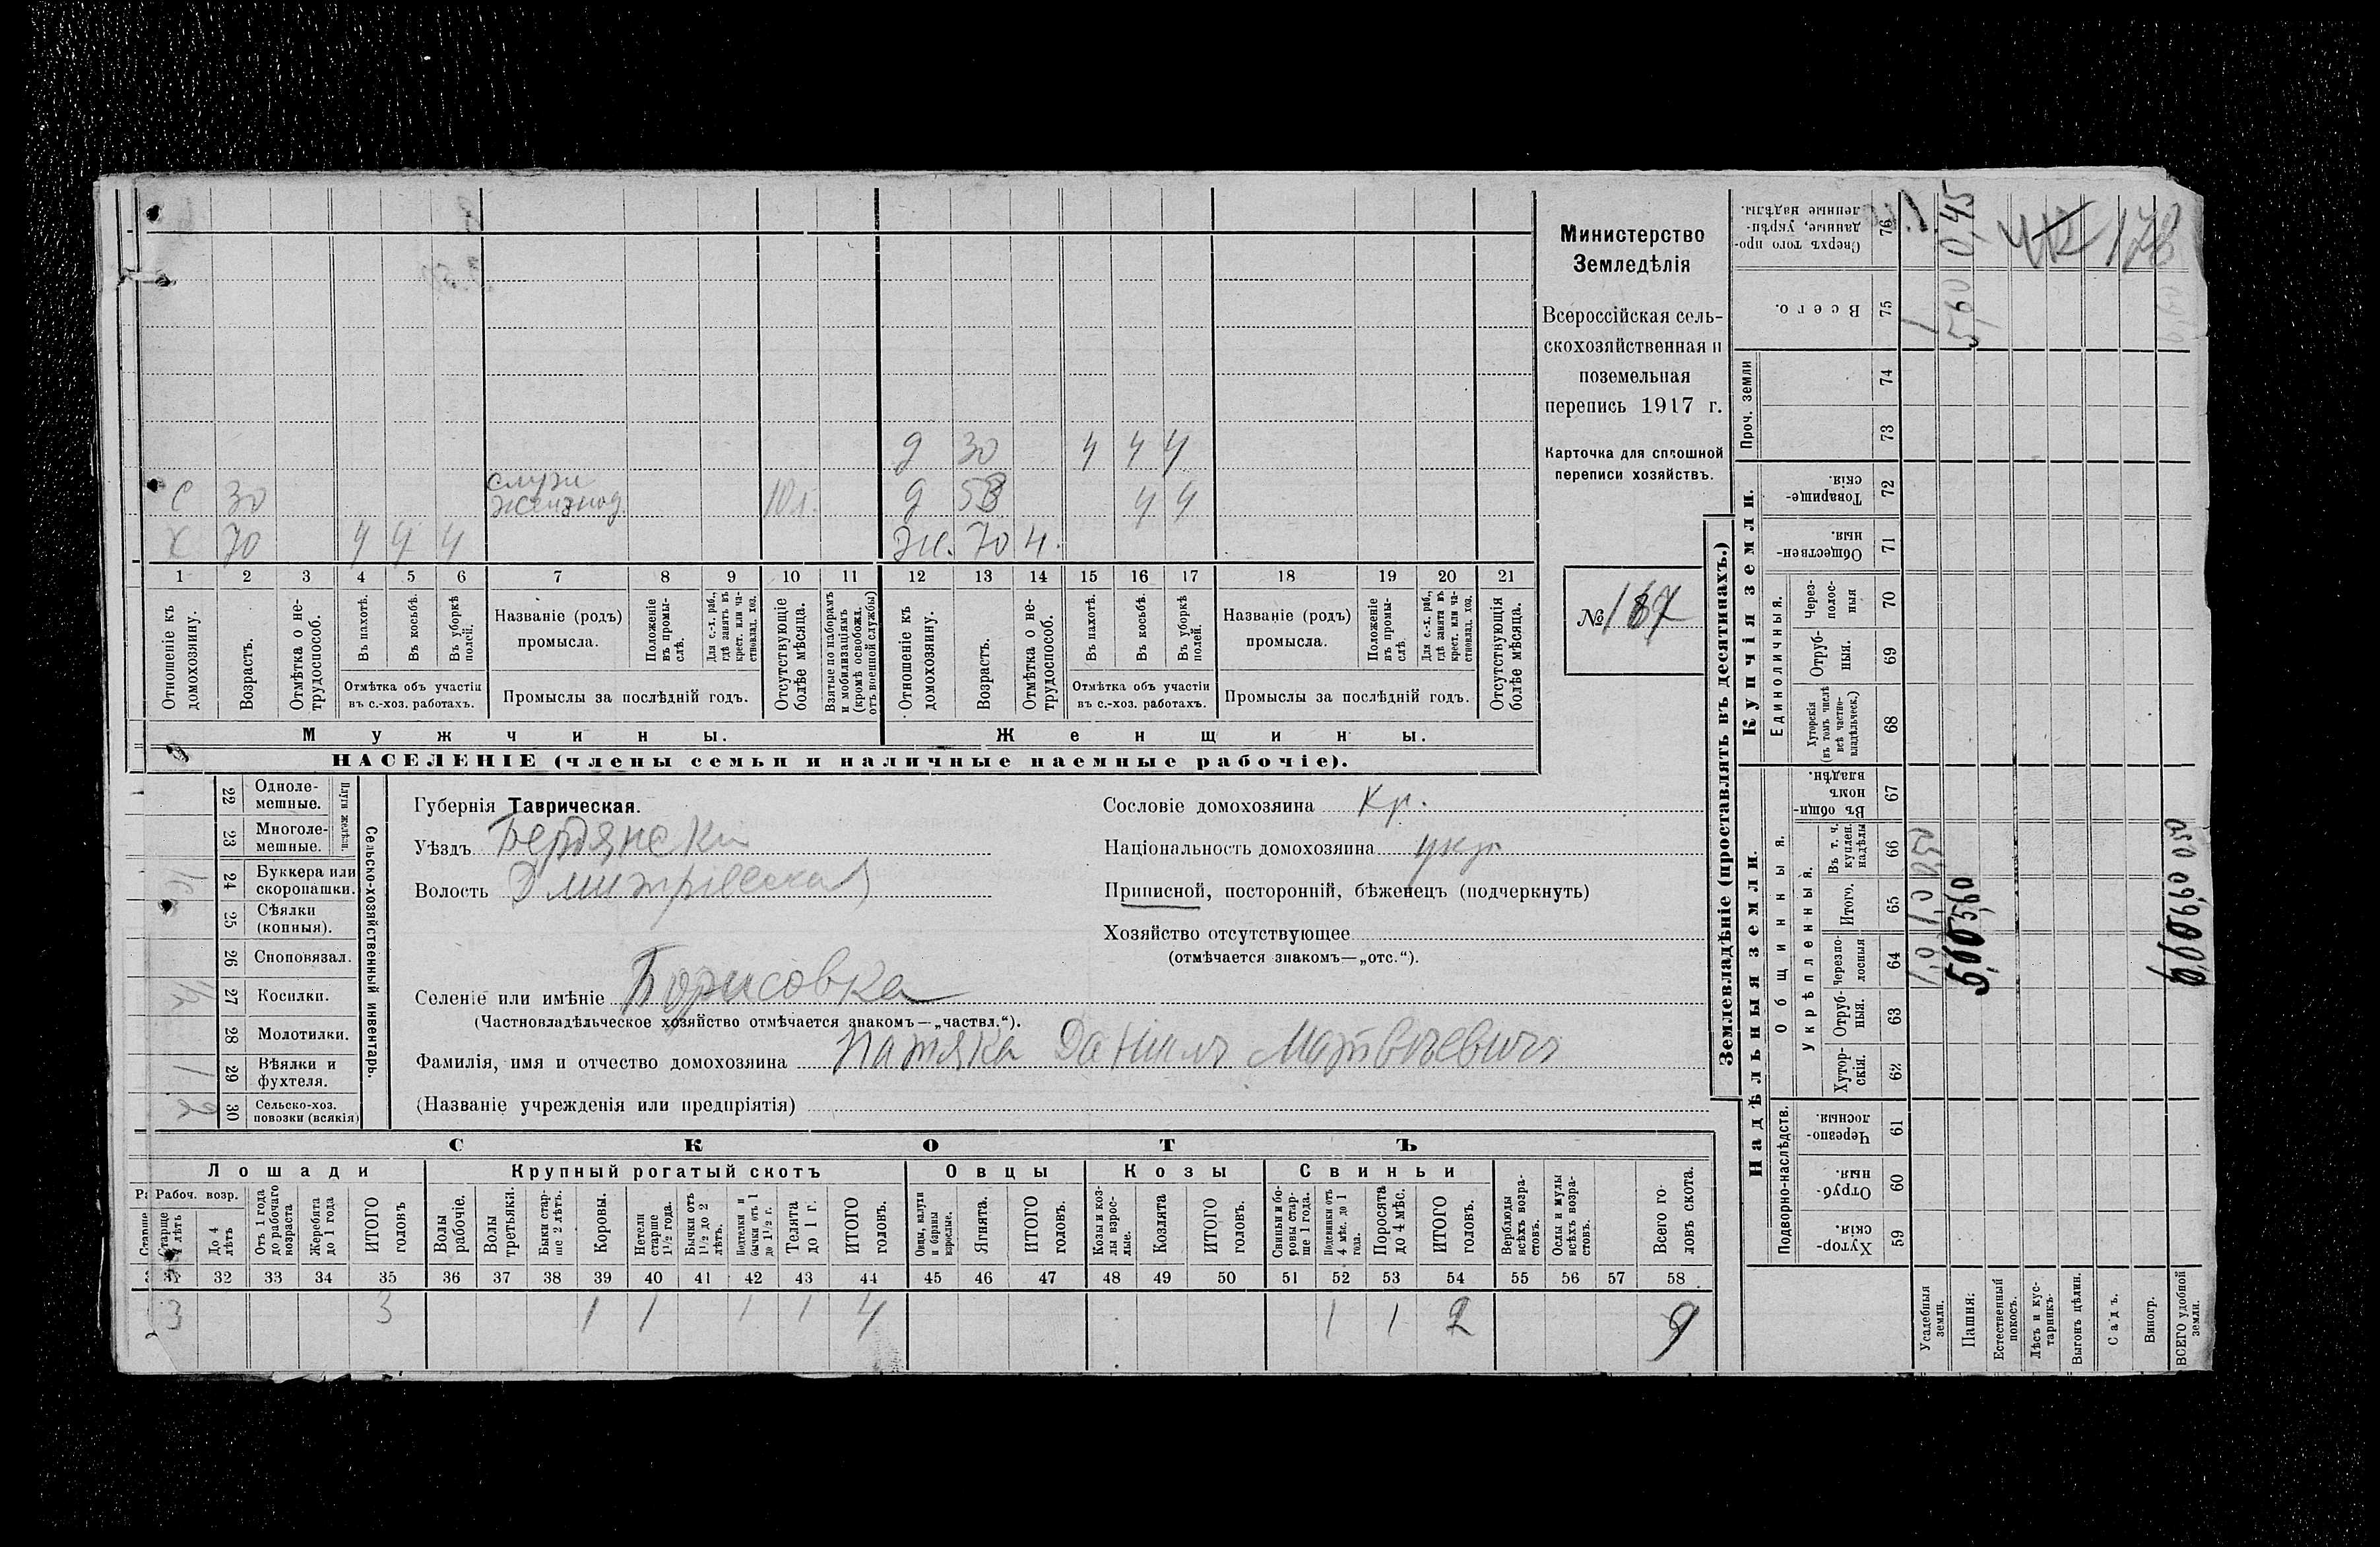 Министерство
Земледѣлія
Всероссійская сель-
скохозяйственная и
поземельная
перепись 1917 г.
Карточка для сплошной
переписи хозяйствъ.
№ 187
д 30 ч ч ч
служ
с 30 железнод 10 л. д 58 ч ч
х 70 ч ч ч ж. 70 н.
1 2 3 4 5 6 7 8 9 10 11 12 13 14 15 16 17 18 19 20 21
Отношеніе къ домохозяину.
Возрастъ.
Отмѣтка о не-трудоспособ.
Въ пахотѣ.
Въ косьбѣ.
Въ уборкѣ полей.
Отмѣтка объ участіи
въ с.-хоз. работахъ.
Названіе (родъ)
промысла.
Положеніе въ промы-слѣ.
Для с.-х. раб., гдѣ занятъ въ крест. или ча-стновлад. хоз.
Промыслы за послѣдній годъ.
Отсутствующіе болѣе мѣсяца.
Взятые по наборамъ и мобилизаціямъ (кромѣ освобожд. отъ военной службы)
Отношеніе къ домохозяину.
Возрастъ.
Отмѣтка о не-трудоспособ.
Въ пахотѣ.
Въ косьбѣ.
Въ уборкѣ полей.
Отмѣтка объ участіи
въ с.-хоз. работахъ.
Названіе (родъ)
промысла.
Положеніе въ промы-слѣ
Для с.-х. раб., гдѣ занята въ крест. или ча-стновлад. хоз.
Промыслы за послѣдній годъ.
Отсутствующія болѣе мѣсяца.
Мужчины.
Женщины.
НАСЕЛЕНІЕ (члены семьи и наличные наемные рабочіе).
Сельско-хозяйственный инвентарь.
Плуги желѣзн.
22 Одноле-мешные.
23 Многоле-мешные.
24 Буккера или скоропашки.
25 Сѣялки (конныя).
26 Сноповязал.
27 Косилки.
28 Молотилки.
29 Вѣялки и фухтеля. 1
30 Сельско-хоз. повозки (всякія) 2
Губернія Таврическая.
Уѣздъ Бердянски
Волость Дмитріевская
Селеніе или имѣніе Борисовка
(Частновладѣльческое хозяйство отмѣчается знакомъ—„частвл.“).
Фамилія, имя и отчество домохозяина Патяка Данилъ Матвѣевичъ
(Названіе учрежденія или предпріятія)
Сословіе домохозяина Кр.
Національность домохозяина укр
Приписной, посторонній, бѣженецъ (подчеркнуть)
Хозяйство отсутствующее
(отмѣчается знакомъ—„отс.“).
СКОТЪ
Лошади
Крупный рогатый скотъ
Овцы
Козы
Свиньи
Рабоч. возр.
Старше 4 лѣтъ
До 4 лѣтъ
Отъ 1 года до рабочаго возраста
Жеребята до 1 года
ИТОГО головъ
Волы рабочіе.
Волы третьяки.
Быки стар-ше 2 лѣтъ.
Коровы.
Нетели старше 1½ года.
Бычки отъ 1½ до 2 лѣтъ.
Подтелки и бычки отъ 1 до 1½ г.
Телята до 1 г.
ИТОГО головъ.
Овцы, валухи и бараны взрослые.
Ягнята.
ИТОГО головъ.
Козы и коз-лы взрос-лые.
Козлята
ИТОГО головъ.
Свиньи и бо-ровы стар-ше 1 года.
Подсвинки отъ 4 мѣс. до 1 года.
Поросята до 4 мѣс.
ИТОГО головъ.
Верблюды всѣхъ возра-стовъ.
Ослы и мулы всѣхъ возра-стовъ.
Всего го-ловъ скота.
32 33 34 35 36 37 38 39 40 41 42 43 44 45 46 47 48 49 50 51 52 53 54 55 56 57 58
3 3 1 1 1 1 4 1 1 2 9
Землевладѣніе (проставлять въ десятинахъ.)
Надѣльныя земли.
Купчія земли.
Проч. земли
Подворно-наслѣдств.
Общинныя.
Укрѣпленныя.
Единоличныя.
59 Хутор-скія.
60 Отруб-ныя.
61 Черезпо-лосныя.
62 Хутор-скія.
63 Отруб-ныя.
64 Черезпо-лосныя
65 Итого.
66 Въ т. ч. куплен. надѣлы
67 Въ общи-номъ владѣн.
68 Хуторскія (въ томъ числѣ всѣ частно-владѣльческ.)
69 Отруб-ныя.
70 Через-полос-ныя
71 Обществен-ныя.
72 Товарище-скія.
73
74
75 Всего.
76 Сверхъ того про-данные, укрѣп-ленные надѣлы.
Усадебныя земли. 1,0 1,0 0,50 1
Пашня. 5,60 5,60 5,60 0,45
Естественный покосъ.
Лѣсъ и кус-тарникъ.
Выгонъ цѣлин.
Садъ.
Виногр.
ВСЕГО удобной земли.
178